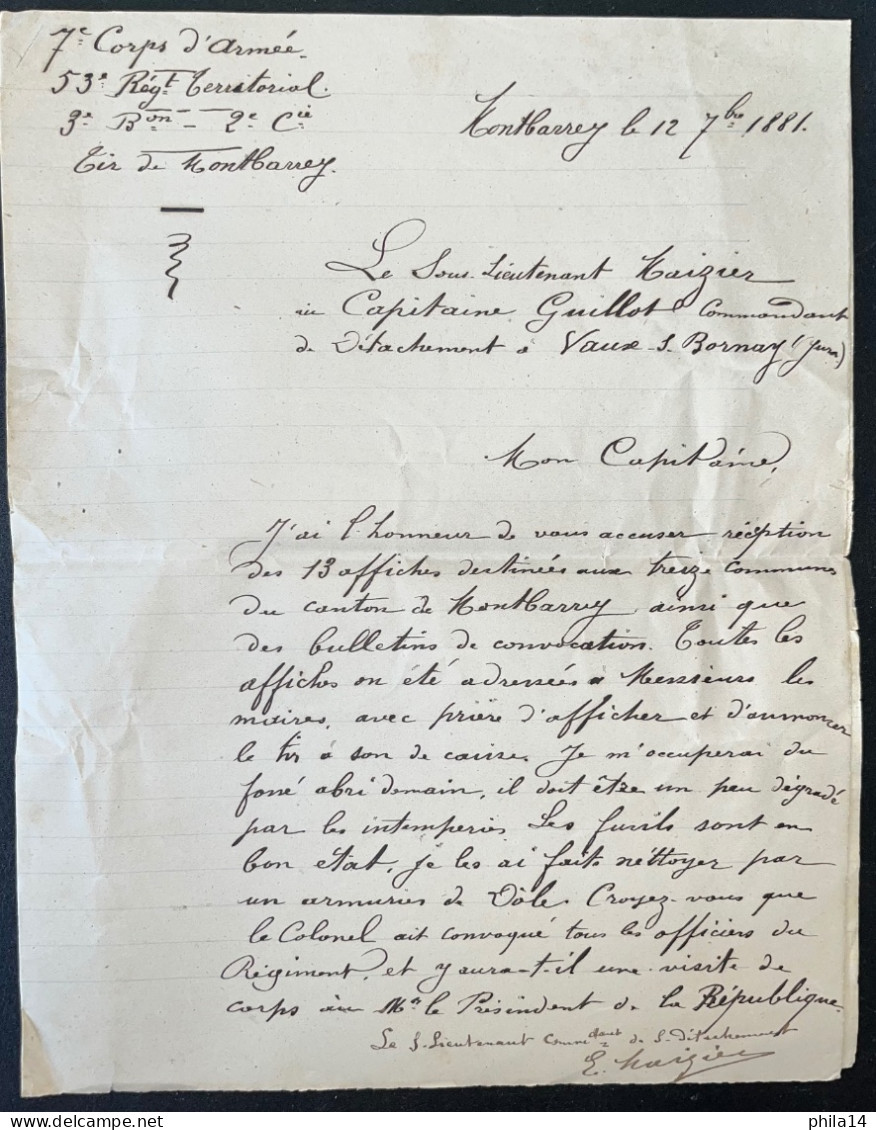 7e Corps d'Armée
53e Régt Territorial.
3e Bon - 2e Cie
Tir de Montbarrey.
Montbarrey le 12 7bre 1881.
Le Sous-Lieutenant Maizier
au Capitaine Guillot Commandant
de Détachement à Vaux-s-Bornay (Jura)
Mon Capitaine,
J'ai l'honneur de vous accuser réception
des 13 affiches destinées aux treize communes
du canton de Montbarrey, ainsi que
des bulletins de convocation. Toutes les
affiches on été adressées à Messieurs les
maires, avec prière d'afficher et d'annoncer
le tir à son de caisse. Je m'occuperai du
fossé abri demain, il doit être un peu dégradé
par les intemperies Les fusils sont en
bon état, je les ai faits néttoyer par
un armuries de Dôle. Croyez-vous que
le Colonel ait convoqué tous les officiers du
Régiment, et y aura-t-il une visite de
corps àu Mr le Présindent de la République.
Le S-Lieutenant Commdant de S-détachement
E. Maizier
phila14